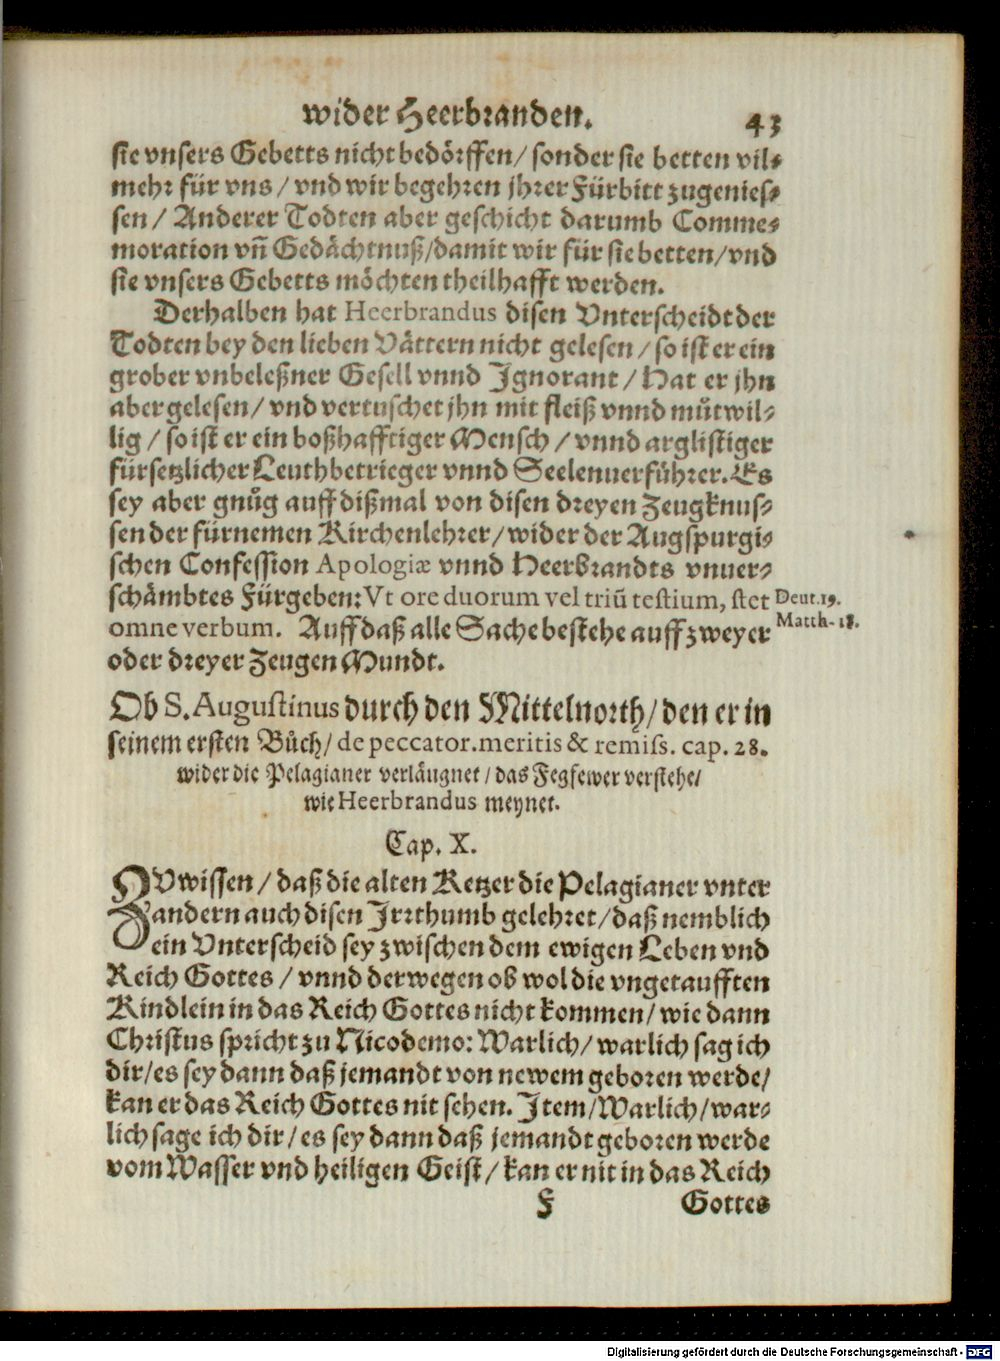 wider Heerbranden. 43
sie vnsers Gebetts nicht bedörffen/ sonder sie betten vil-
mehr für vns / vnd wir begehren jhrer Fürbitt zugenies-
sen/ Anderer Todten aber geschicht darumb Comme-
moration vñ Gedächtnuß/damit wir für sie betten/vnd
sie vnsers Gebetts möchten theilhafft werden.
Derhalben hat Heerbrandus disen Vnterscheidt der
Todten bey den lieben Vättern nicht gelesen/ so ist er ein
grober vnbeleßner Gesell vnnd Ignorant / Hat er jhn
aber gelesen/ vnd vertuschet jhn mit fleiß vnnd můtwil-
lig / so ist er ein boßhafftiger Mensch / vnnd arglistiger
fürsetzlicher Leuthbetrieger vnnd Seelenuerführer. Es
sey aber gnůg auff dißmal von disen dreyen Zeugknus-
sen der fürnemen Kirchenlehrer/ wider der Augspurgi-
schen Confession Apologiæ vnnd Heerbrandts vnuer-
schämbtes Fürgeben: Vt ore duorum vel triũ testium, stet Deut.19.
omne verbum. Auff daß alle Sache bestehe auff zweyer Matth. 18.
oder dreyer Zeugen Mundt.
Ob S. Augustinus durch den Mittelnorth/ den er in
seinem ersten Bůch/ de peccator. meritis & remiss. cap. 28.
wider die Pelagianer verläugnet / das Fegfewer verstehe/
wie Heerbrandus meynet.
Cap. X.
ZVwissen / daß die alten Ketzer die Pelagianer vnter
andern auch disen Irrthumb gelehret/ daß nemblich
ein Vnterscheid sey zwischen dem ewigen Leben vnd
Reich Gottes / vnnd derwegen ob wol die vngetaufften
Kindlein in das Reich Gottes nicht kommen/ wie dann
Christus spricht zu Nicodemo: Warlich/ warlich sag ich
dir/ es sey dann daß jemandt von newem geboren werde/
kan er das Reich Gottes nit sehen. Item/Warlich/war-
lich sage ich dir / es sey dann daß jemandt geboren werde
vom Wasser vnd heiligen Geist/ kan er nit in das Reich
F Gottes
Digitalisierung gefördert durch die Deutsche Forschungsgemeinschaft - DFG